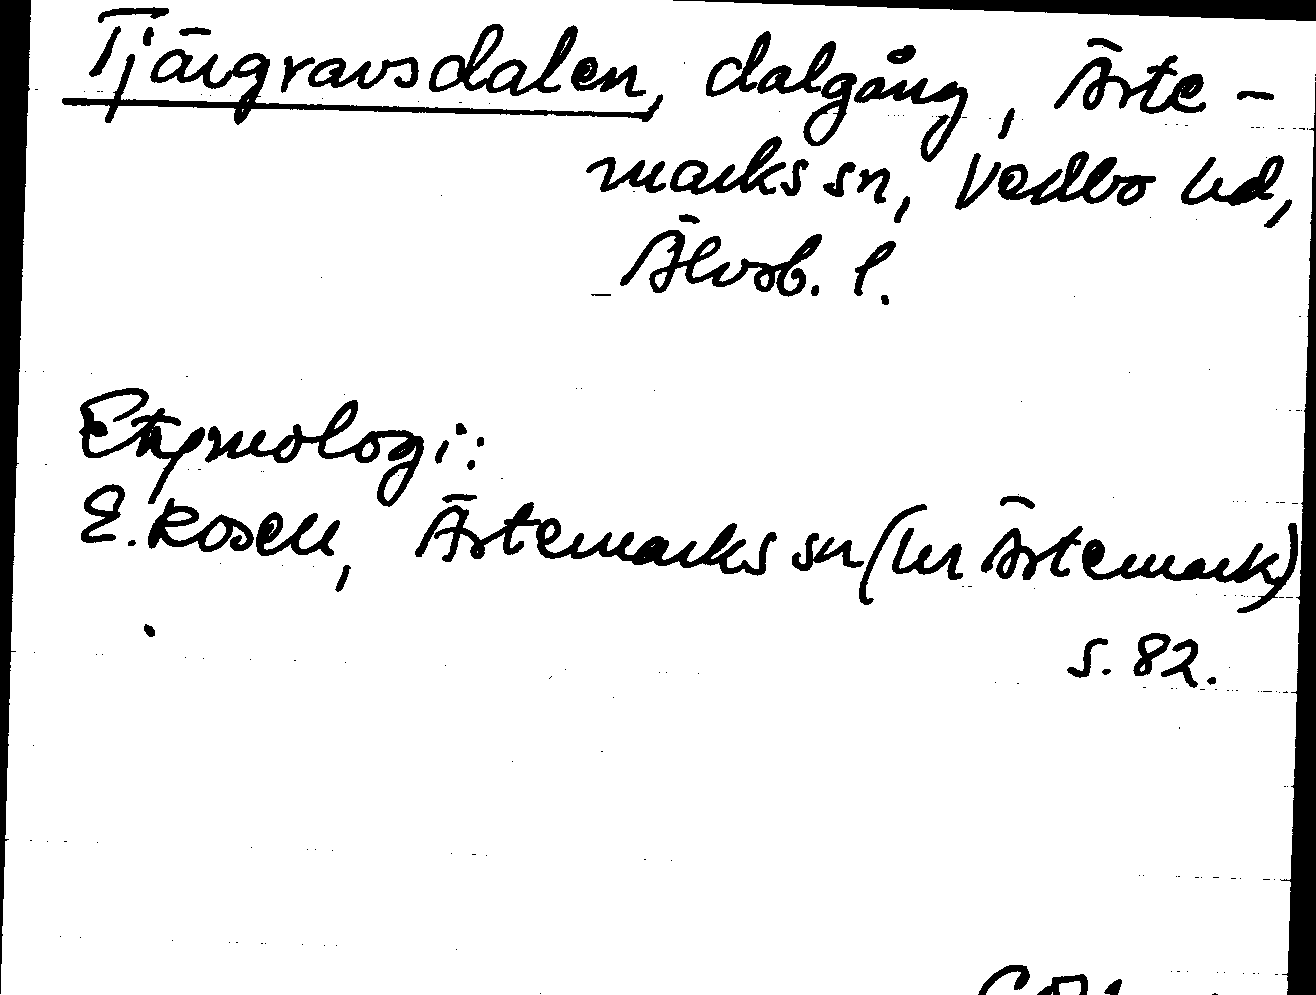 Tjärgravsdalen, dalgång, Ärte-
marks sn, Vedbo hd,
Älvsb. l.
Etymologi:
E. Rosell, Ärtemarks sn (hr Ärtemark)
s. 82.